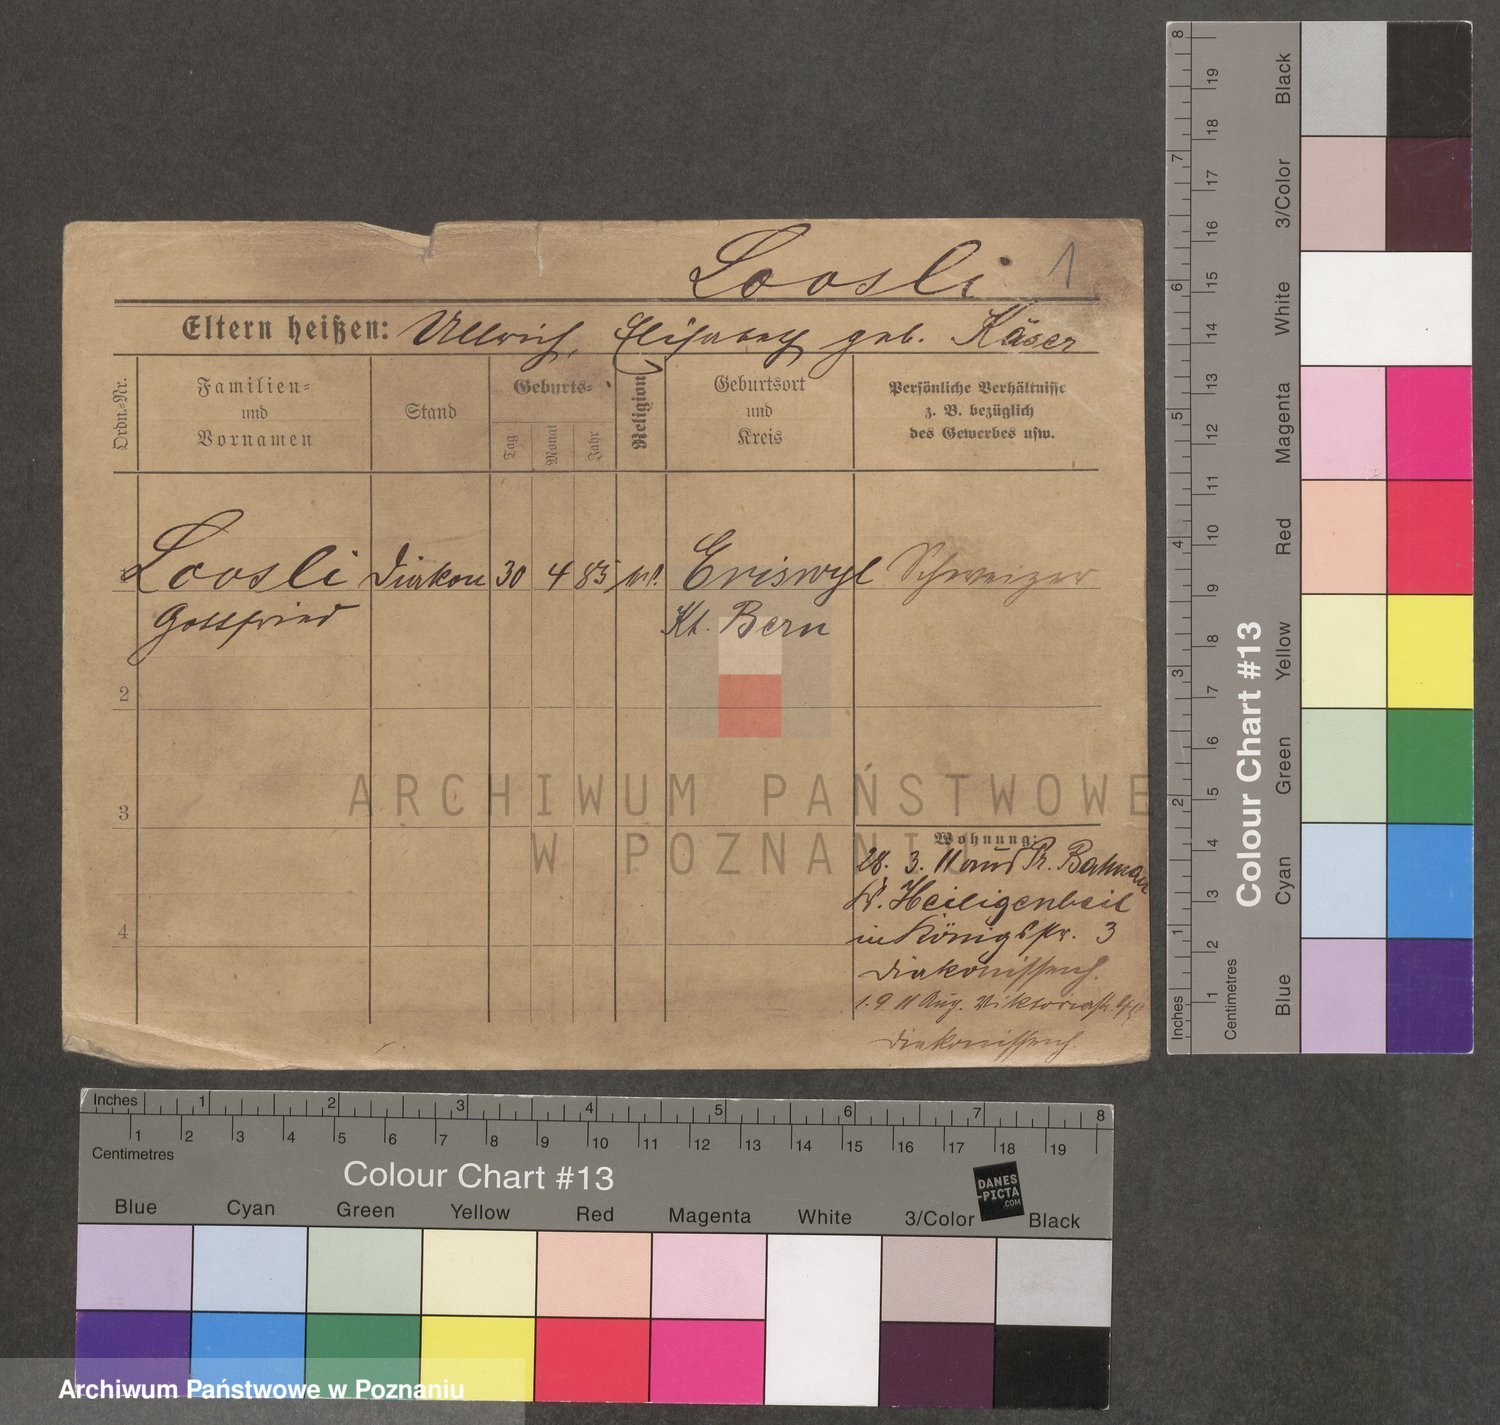 Loosli 1
Eltern heißen: Ullrich, Elisabeth geb. Käser
Ordn.-Nr.
Familien-
und
Vornamen
Stand
Geburts-
Tag
Monat
Jahr
Religion
Geburtsort
und
Kreis
Persönliche Verhältnisse
z. B. bezüglich
des Gewerbes usw.
1 Loosli Diakon 30 4 85 Eriswyl Schweizer
Gottfried Kt. Bern
2
3
4
Wohnung:
28. 3. 11 aus Pr. Bahnau
Kr. Heiligenbeil
in Königspr. 3
Diakonissenh.
1. 9 11 Aug. Viktoriastr.
Diakonissenh.
ARCHIWUM PAŃSTWOWE
W POZNANIU
Inches 1 2 3 4 5 6 7 8
1 2 3 4 5 6 7 8 9 10 11 12 13 14 15 16 17 18 19
Centimetres
Colour Chart #13
Blue Cyan Green Yellow Red Magenta White 3/Color Black
DANES
-PICTA
.COM
Inches 1 2 3 4 5 6 7 8
Centimetres 1 2 3 4 5 6 7 8 9 10 11 12 13 14 15 16 17 18 19
Colour Chart #13
Blue Cyan Green Yellow Red Magenta White 3/Color Black
Archiwum Państwowe w Poznaniu